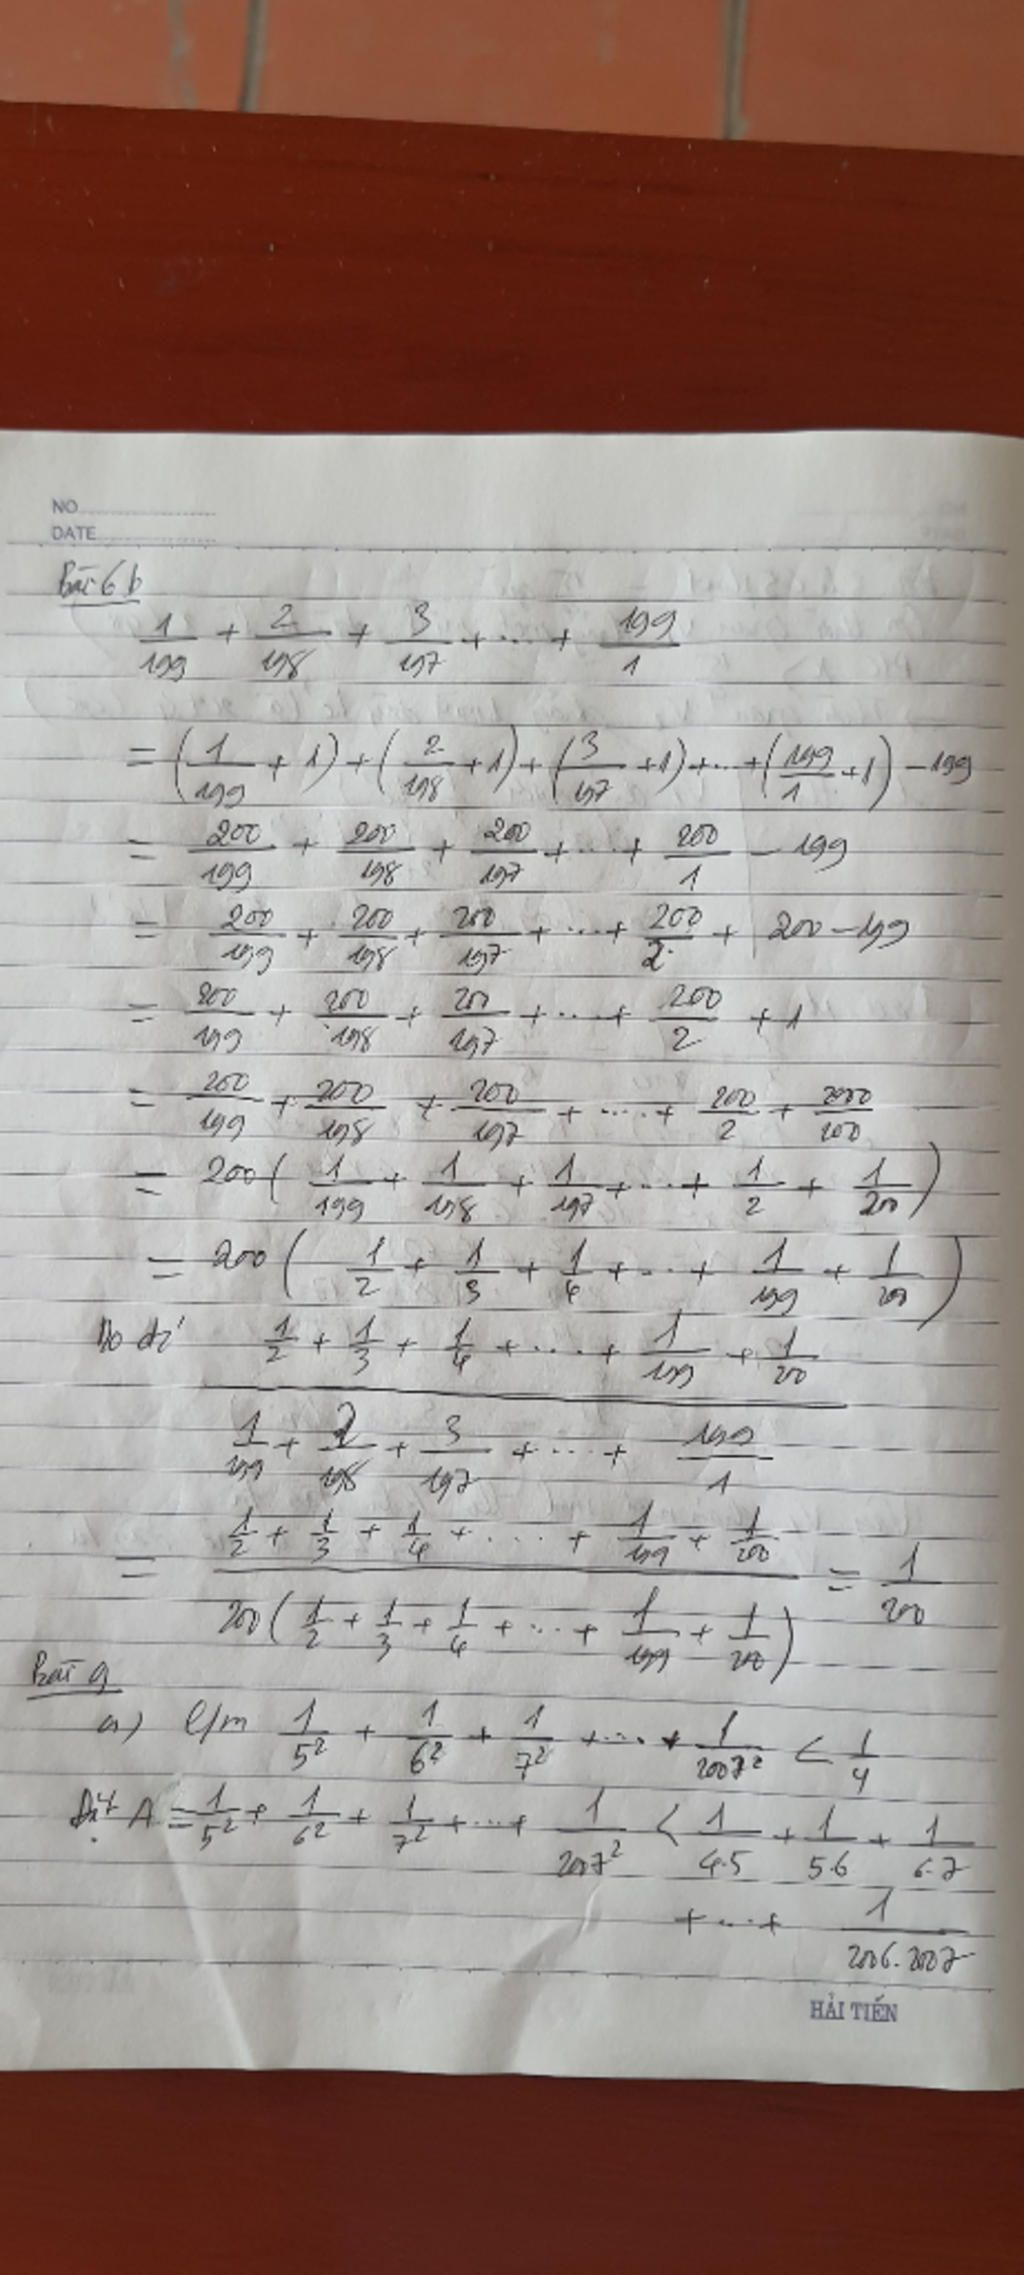 NO
DATE
Bài 6 b
1/199 + 2/198 + 3/197 + ... + 199/1
= (1/199 + 1) + (2/198 + 1) + (3/197 + 1) + ... + (199/1 + 1) - 199
= 200/199 + 200/198 + 200/197 + ... + 200/1 - 199
= 200/199 + 200/198 + 200/197 + ... + 200/2 + 200 - 199
= 200/199 + 200/198 + 200/197 + ... + 200/2 + 1
= 200/199 + 200/198 + 200/197 + ... + 200/2 + 200/200
= 200 (1/199 + 1/198 + 1/197 + ... + 1/2 + 1/200)
= 200 (1/2 + 1/3 + 1/4 + ... + 1/199 + 1/200)
Do đó (1/2 + 1/3 + 1/4 + ... + 1/199 + 1/200) / (1/199 + 2/198 + 3/197 + ... + 199/1)
= (1/2 + 1/3 + 1/4 + ... + 1/199 + 1/200) / (200 (1/2 + 1/3 + 1/4 + ... + 1/199 + 1/200)) = 1/200
Bài 9
a) C/m 1/5² + 1/6² + 1/7² + ... + 1/2007² < 1/4
Đặt A = 1/5² + 1/6² + 1/7² + ... + 1/2007² < 1/4.5 + 1/5.6 + 1/6.7
+ ... + 1/2006.2007
HẢI TIẾN